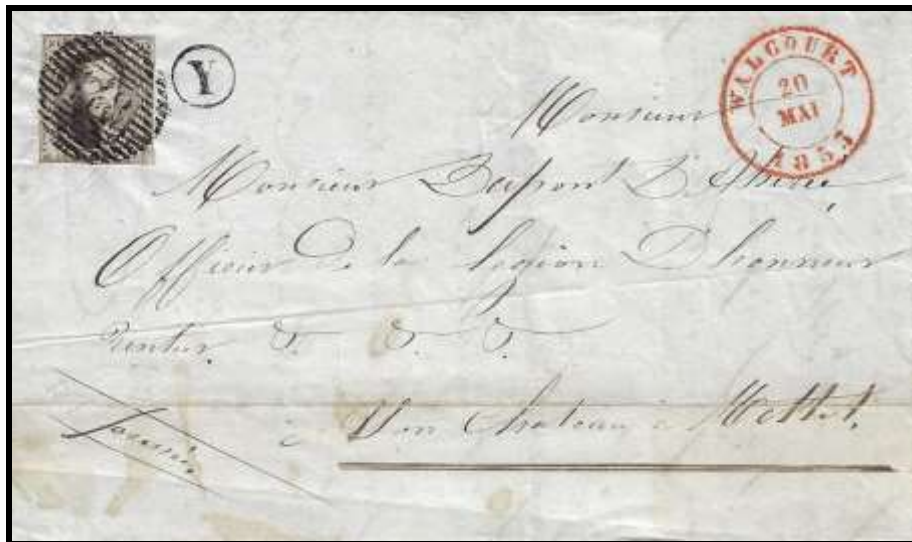 Y
WALCOURT
20
MAI
1853
Monsieur
Monsieur Dupont D'Ahérée
Officier de la Légion D'honneur
Rentier &. &. &.
à Son Chateau à Mettet.